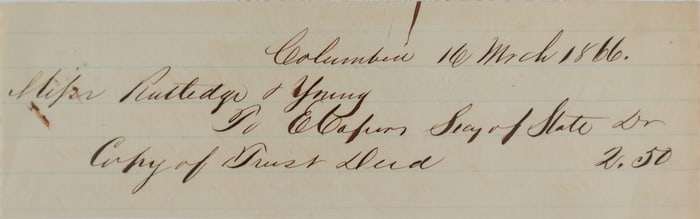 Columbia 16 Mrch 1866.
Messr Rutledge & Young
To E Capers Secy of State Dr
Copy of Trust Deed 2.50